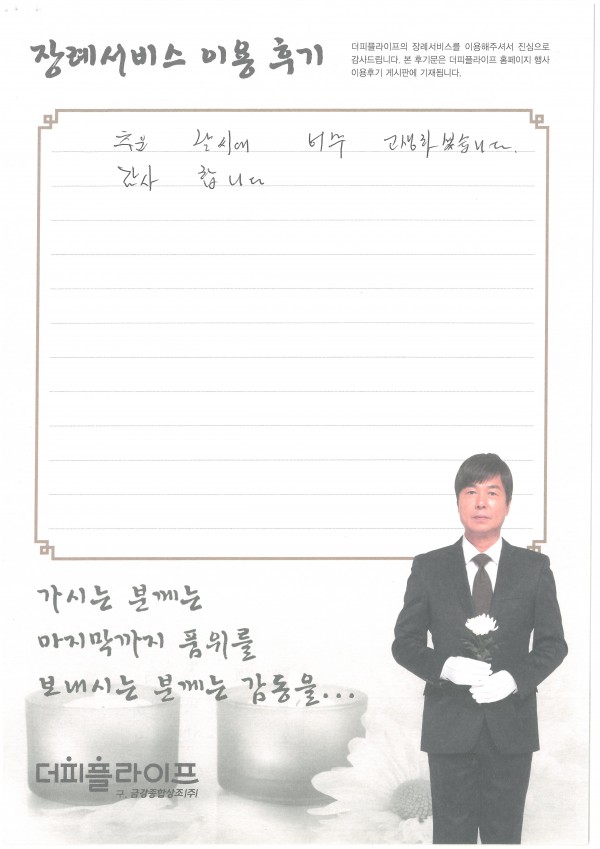 장례서비스 이용 후기
더피플라이프의 장례서비스를 이용해주셔서 진심으로
감사드립니다. 본 후기문은 더피플라이프 홈페이지 행사
이용후기 게시판에 기재됩니다.
추운 날씨에 너무 고생하셨습니다.
감사 합니다
가시는 분께는
마지막까지 품위를
보내시는 분께는 감동을...
더피플라이프
구. 금강종합상조(주)